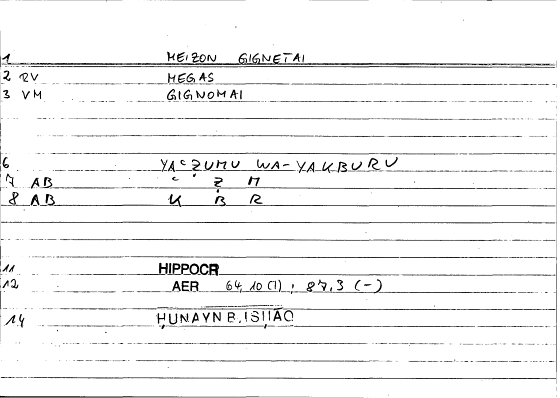 1 MEIZON GIGNETAI
2 RV MEGAS
3 VM GIGNOMAI
6 YAʿẒUMU WA-YAKBURU
7 AB ʿ Ẓ M
8 AB K B R
11 HIPPOCR
12 AER 64,10 (1) ; 87,3 (-)
14 ḤUNAYN B. ISḤAQ